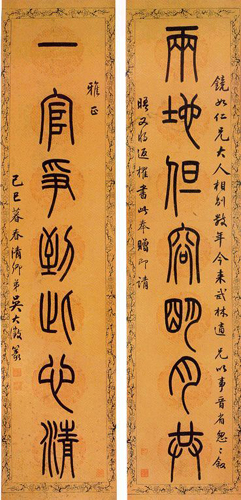 饒如仁兄大人相別數年今來武林適兄以事晉省怱〻敘
兩地但容明月共
晤又將返櫂書此奉贈即請
雅正
一官爭到此心清
己巳暮春清卿弟吳大澂篆